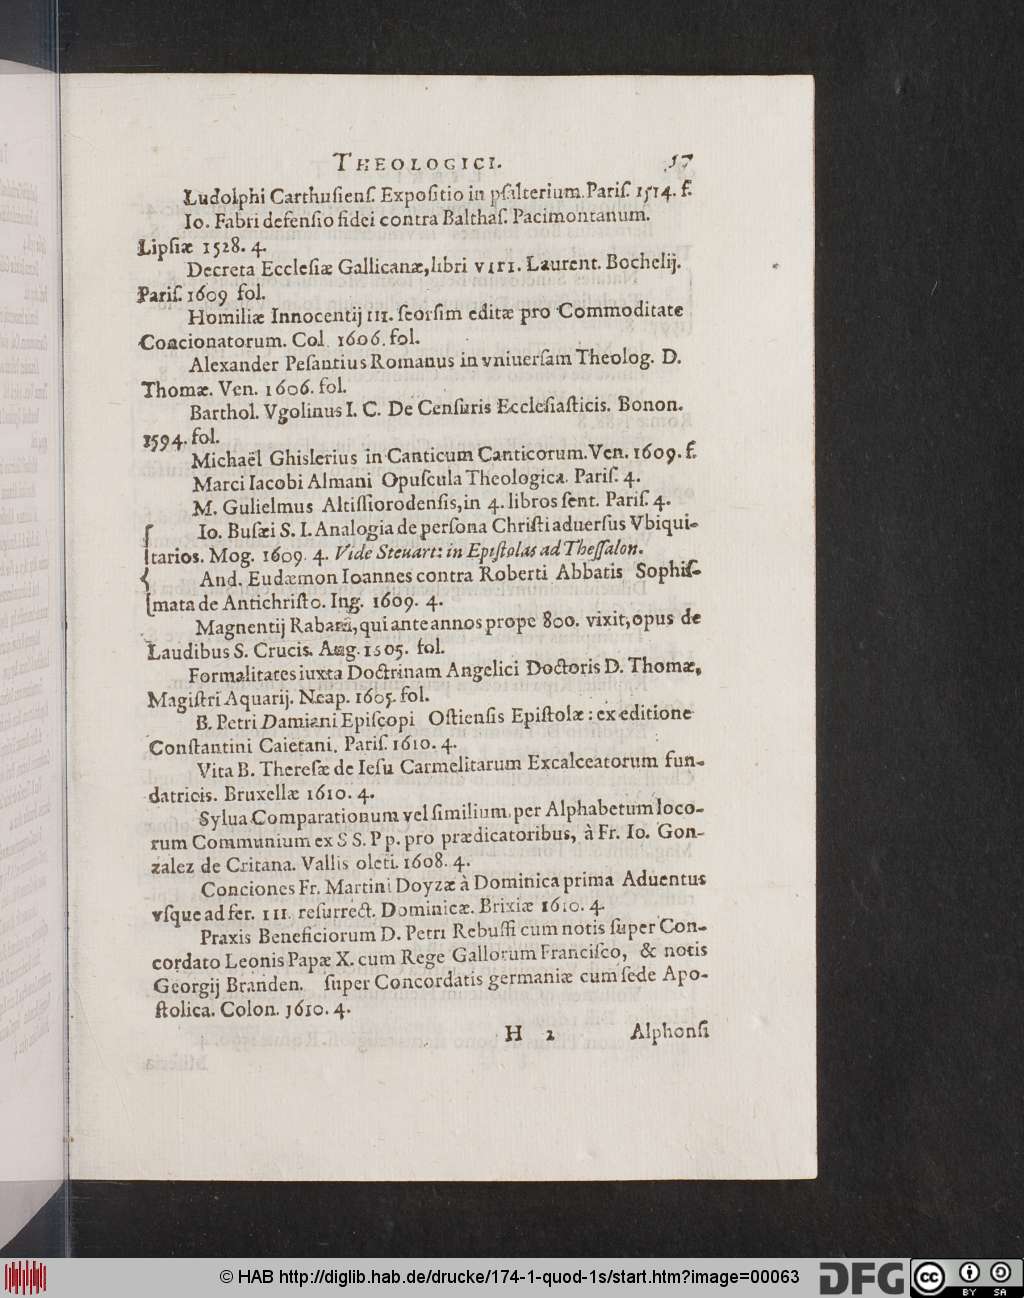 THEOLOGICI. 57
Ludolphi Carthusiens. Expositio in psalterium. Paris. 1514. f.
Io. Fabri defensio fidei contra Balthas. Pacimontanum.
Lipsiæ 1528. 4.
Decreta Ecclesiæ Gallicanæ, libri VIII. Laurent. Bochelij.
Paris. 1609 fol.
Homiliæ Innocentij III. seorsim editæ pro Commoditate
Concionatorum. Col. 1606. fol.
Alexander Pesantius Romanus in vniuersam Theolog. D.
Thomæ. Ven. 1606. fol.
Barthol. Vgolinus I. C. De Censuris Ecclesiasticis. Bonon.
1594. fol.
Michaël Ghislerius in Canticum Canticorum. Ven. 1609. f.
Marci Iacobi Almani Opuscula Theologica. Paris. 4.
M. Gulielmus Altissiorodensis, in 4. libros sent. Paris. 4.
Io. Busæi S. I. Analogia de persona Christi aduersus Vbiqui-
tarios. Mog. 1609. 4. Vide Steuart: in Epistolas ad Thessalon.
And. Eudæmon Ioannes contra Roberti Abbatis Sophis-
mata de Antichristo. Ing. 1609. 4.
Magnentij Rabani, qui ante annos prope 800. vixit, opus de
Laudibus S. Crucis. Aug. 1605. fol.
Formalitates iuxta Doctrinam Angelici Doctoris D. Thomæ,
Magistri Aquarij. Neap. 1605. fol.
B. Petri Damiani Episcopi Ostiensis Epistolæ: ex editione
Constantini Caietani. Paris. 1610. 4.
Vita B. Theresæ de Iesu Carmelitarum Excalceatorum fun-
datricis. Bruxellæ 1610. 4.
Sylua Comparationum vel similium. per Alphabetum loco-
rum Communium ex S S. P p. pro prædicatoribus, à Fr. Io. Gon-
zalez de Critana. Vallis oleti. 1608. 4.
Conciones Fr. Martini Doyzæ à Dominica prima Aduentus
vsque ad fer. III. resurrect. Dominicæ. Brixiæ 1610. 4.
Praxis Beneficiorum D. Petri Rebuffi cum notis super Con-
cordato Leonis Papæ X. cum Rege Gallorum Francisco, & notis
Georgij Branden. super Concordatis germaniæ cum sede Apo-
stolica. Colon. 1610. 4.
H 2 Alphonsi
© HAB http://diglib.hab.de/drucke/174-1-quod-1s/start.htm?image=00063
DFG
cc BY SA